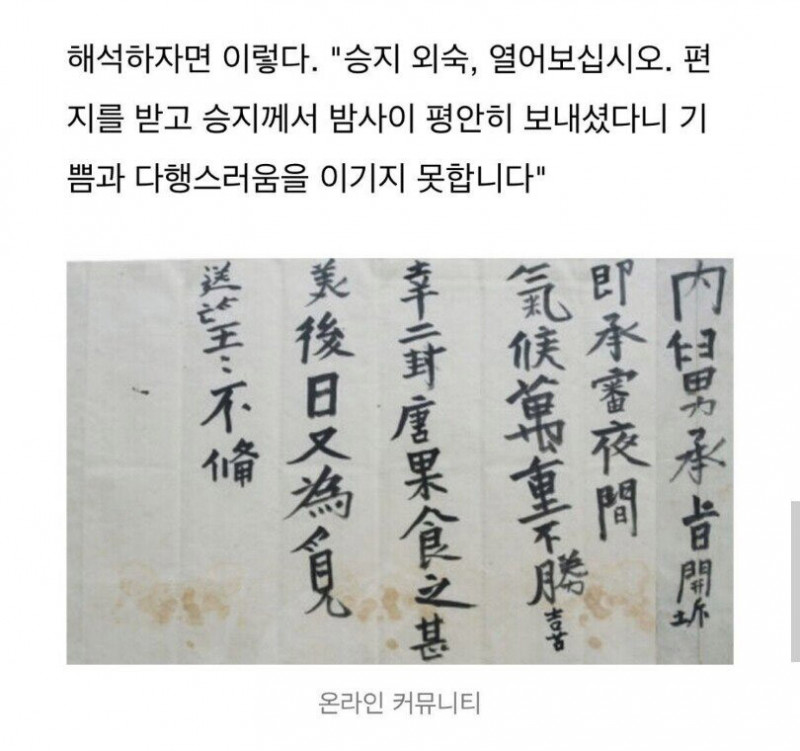 해석하자면 이렇다. "승지 외숙, 열어보십시오. 편
지를 받고 승지께서 밤사이 평안히 보내셨다니 기
쁨과 다행스러움을 이기지 못합니다"
内舅承旨開坼
即承審夜間
氣候萬重不勝喜
幸二封唐果食之甚
美後日又為覓
送望〻不備
온라인 커뮤니티